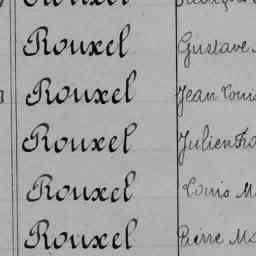 Rouxel Gustave
Rouxel Jean Louis
Rouxel Julien
Rouxel Louis M
Rouxel Pierre Ma